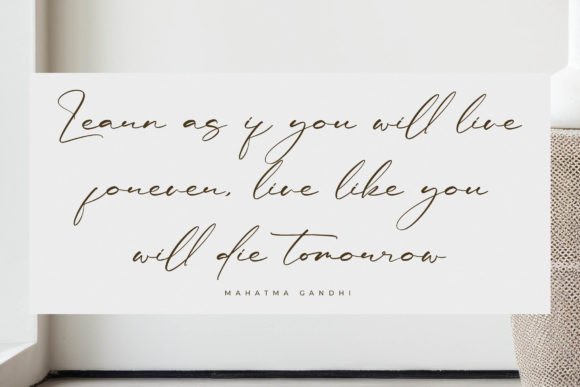 Learn as if you will live
forever, live like you
will die tomorrow
MAHATMA GANDHI